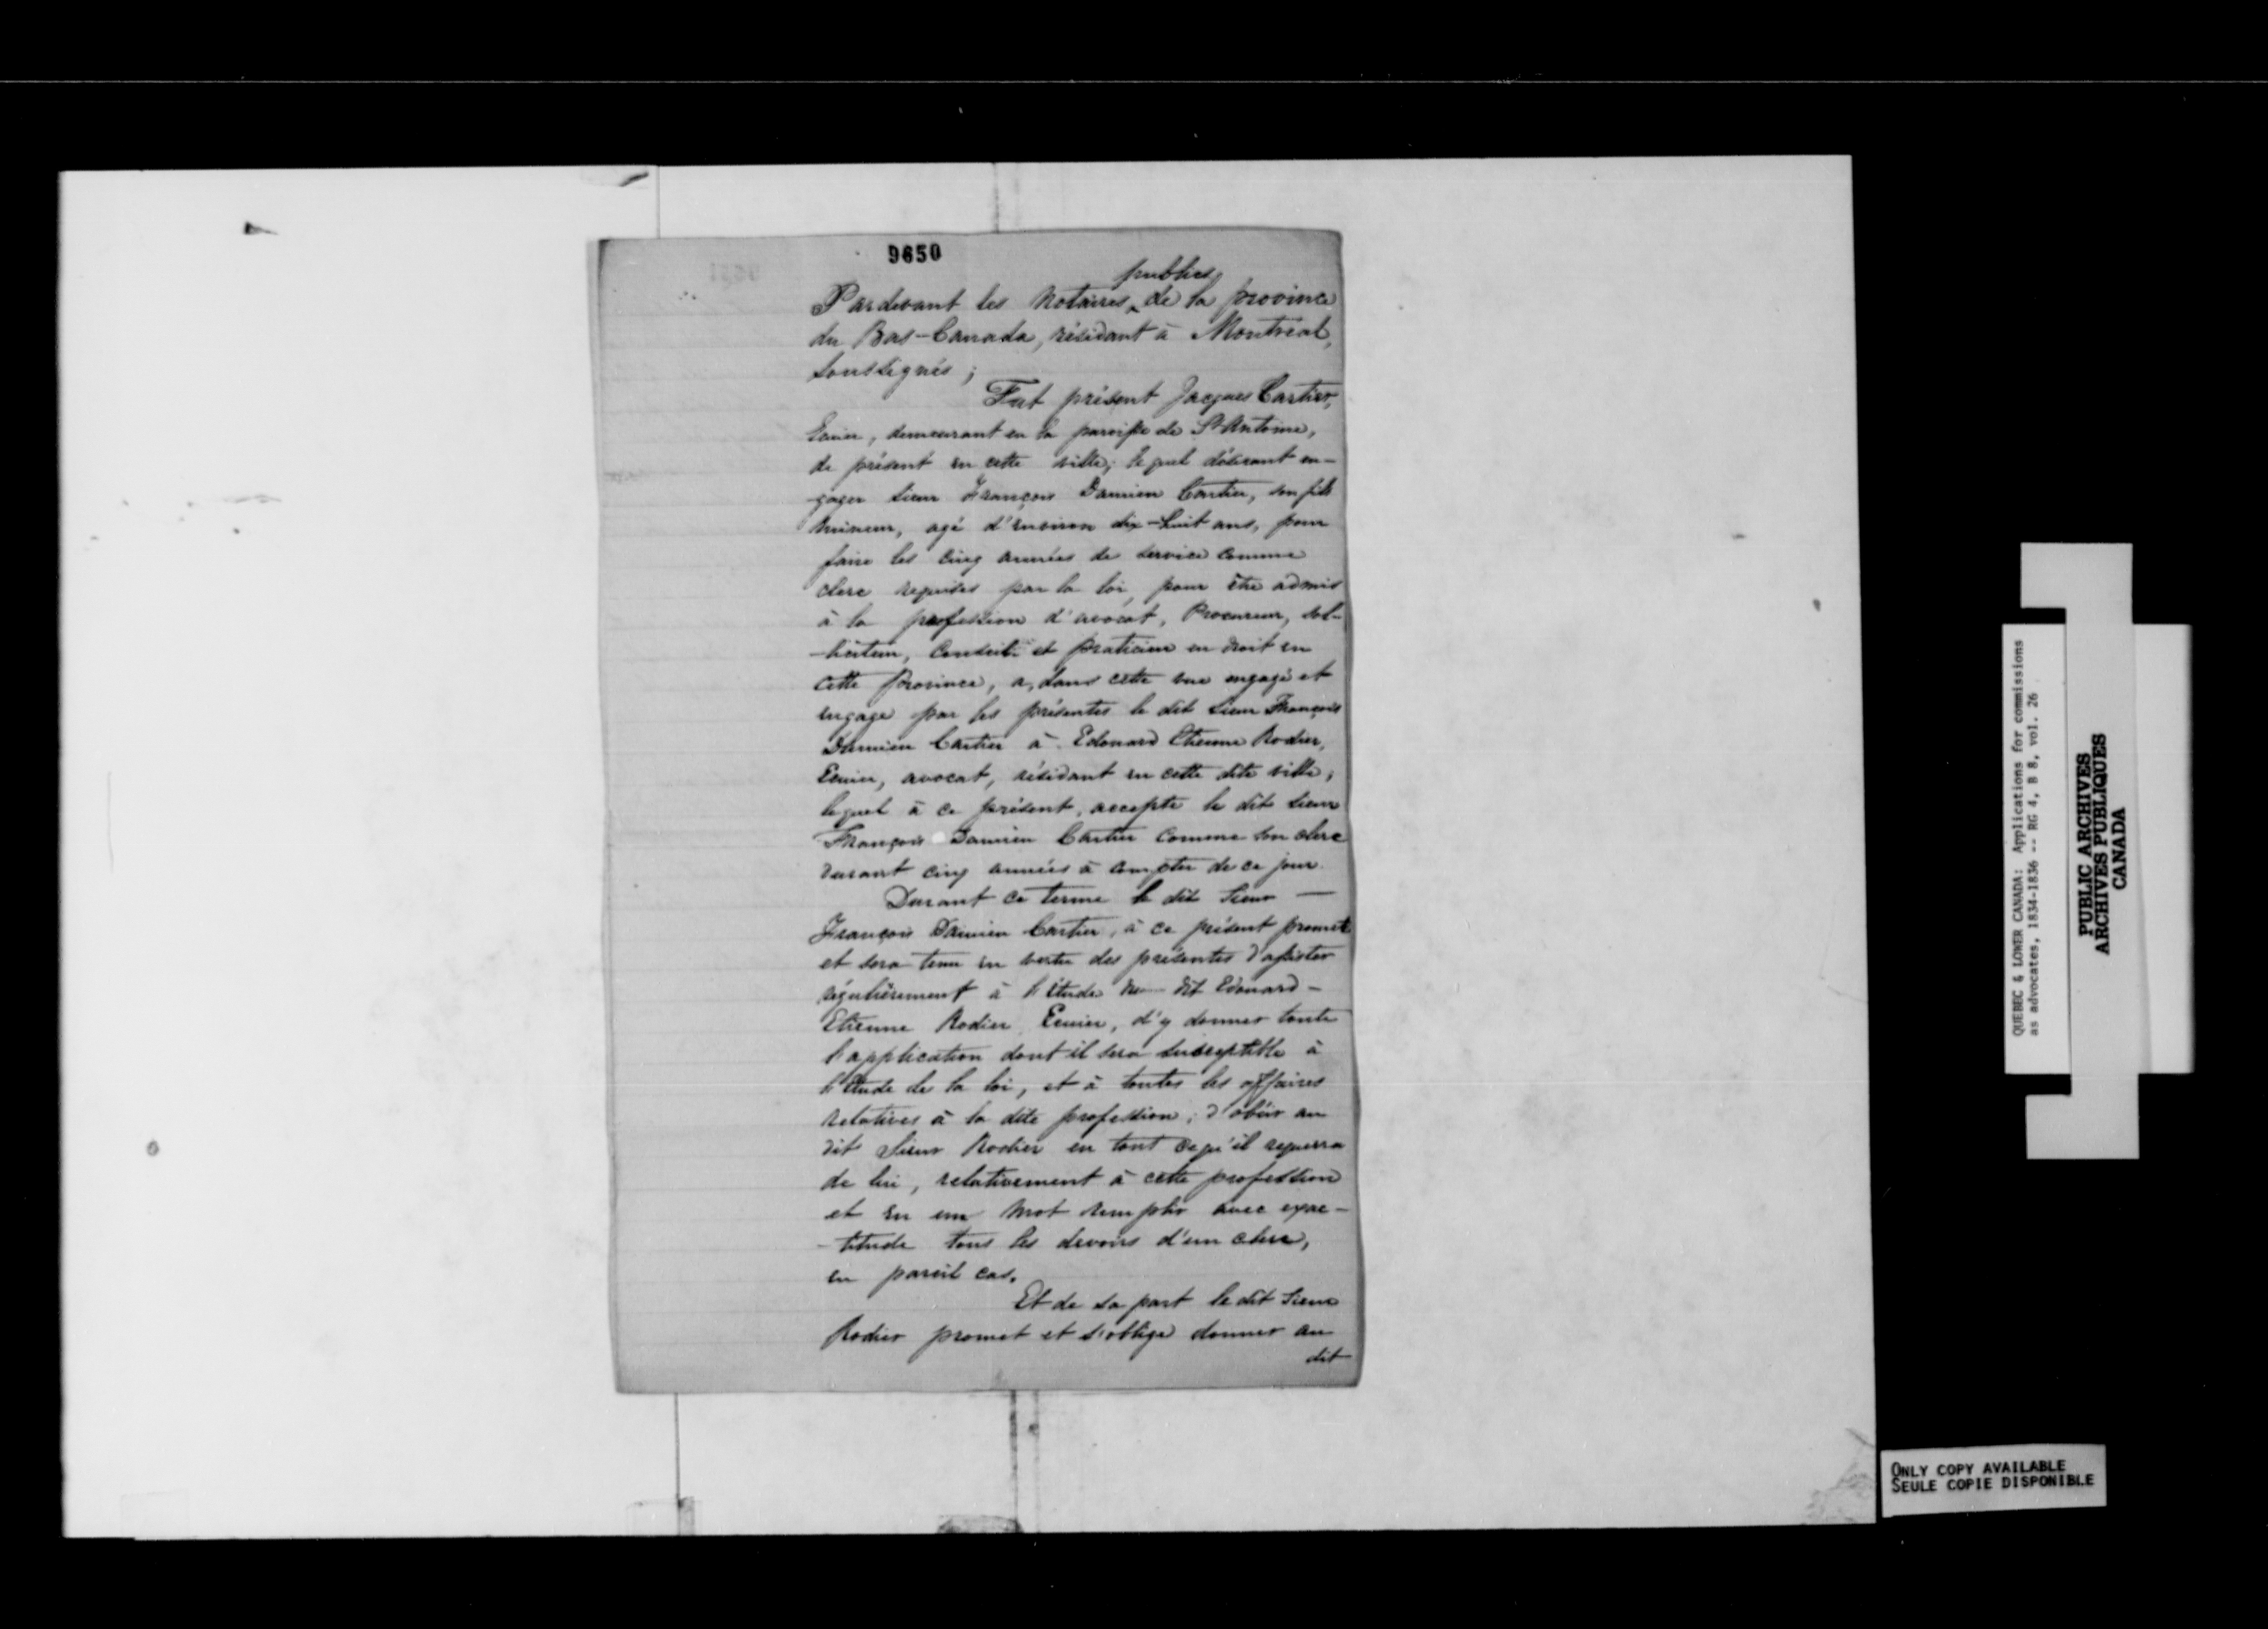 9650
publics
Pardevant les Notaires ^ de la province
du Bas-Canada, résidant à Montréal,
soussignés ;
Fut présent Jacques Cartier,
Ecuier, demeurant en la paroisse de St Antoine,
de présent en cette ville; lequel désirant en-
-gager Sieur François Damien Cartier, son fils
mineur, agé d'environ dix-huit ans, pour
faire les cinq années de service comme
clerc requises par la loi, pour être admis
à la profession d'avocat, Procureur, sol-
-liciteur, Conseil et praticien en droit en
cette Province, a, dans cette vue engagé et
engage par les présentes le dit Sieur François
Damien Cartier à Edouard Etienne Rodier,
Ecuier, avocat, résidant en cette dite ville,
lequel à ce présent, accepte le dit Sieur
François Damien Cartier comme son clerc
durant cinq années à compter de ce jour.
Durant ce terme le dit Sieur —
François Damien Cartier, à ce présent promet
et sera tenu en vertu des présentes d'assister
régulièrement à l'étude du dit Edouard-
Etienne Rodier Ecuier, d'y donner toute
l'application dont il sera susceptible à
l'étude de la loi, et à toutes les affaires
relatives à la dite profession; d'obéir au
dit Sieur Rodier en tout ce qu'il requerra
de lui, relativement à cette profession
et en un mot remplir avec exac-
-titude tous les devoirs d'un clerc,
en pareil cas.
Et de sa part le dit Sieur
Rodier promet et s'oblige donner au
dit
QUEBEC & LOWER CANADA: Applications for commissions
as advocates, 1834-1836 -- RG 4, B 8, vol. 26
PUBLIC ARCHIVES
ARCHIVES PUBLIQUES
CANADA
ONLY COPY AVAILABLE
SEULE COPIE DISPONIBLE